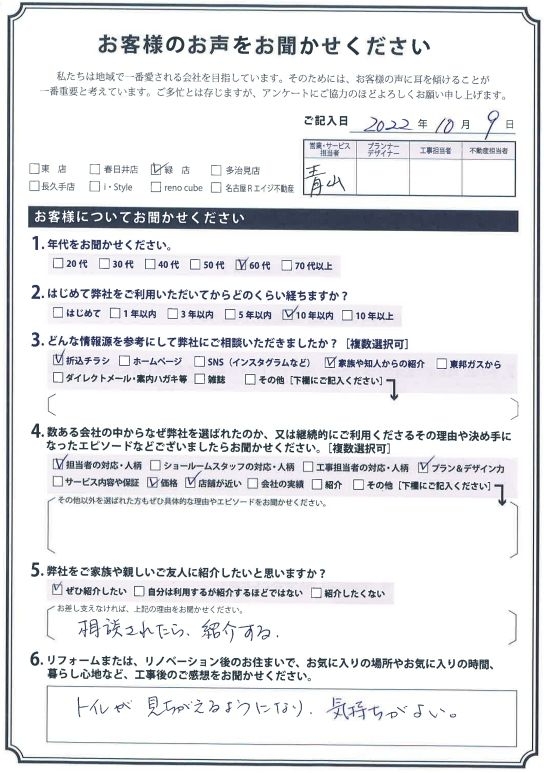 お客様のお声をお聞かせください
私たちは地域で一番愛される会社を目指しています。そのためには、お客様の声に耳を傾けることが
一番重要と考えています。ご多忙とは存じますが、アンケートにご協力のほどよろしくお願い申し上げます。
ご記入日 2022 年 10 月 9 日
営業・サービス担当者 プランナーデザイナー 工事担当者 不動産担当者
青山
□東 店 □春日井店 ☑緑 店 □多治見店
□長久手店 □i・Style □reno cube □名古屋Rエイジ不動産
お客様についてお聞かせください
1. 年代をお聞かせください。
□20代 □30代 □40代 □50代 ☑60代 □70代以上
2. はじめて弊社をご利用いただいてからどのくらい経ちますか？
□はじめて □1年以内 □3年以内 □5年以内 ☑10年以内 □10年以上
3. どんな情報源を参考にして弊社にご相談いただきましたか？［複数選択可］
☑折込チラシ □ホームページ □SNS（インスタグラムなど） ☑家族や知人からの紹介 □東邦ガスから
□ダイレクトメール・案内ハガキ等 □雑誌 □その他［下欄にご記入ください］
4. 数ある会社の中からなぜ弊社を選ばれたのか、又は継続的にご利用くださるその理由や決め手に
なったエピソードなどございましたらお聞かせください。［複数選択可］
☑担当者の対応・人柄 □ショールームスタッフの対応・人柄 □工事担当者の対応・人柄 ☑プラン＆デザイン力
□サービス内容や保証 ☑価格 ☑店舗が近い □会社の実績 □紹介 □その他［下欄にご記入ください］
その他以外を選ばれた方もぜひ具体的な理由やエピソードをお聞かせください。
5. 弊社をご家族や親しいご友人に紹介したいと思いますか？
☑ぜひ紹介したい □自分は利用するが紹介するほどではない □紹介したくない
お差し支えなければ、上記の理由をお聞かせください。
相談されたら、紹介する。
6. リフォームまたは、リノベーション後のお住まいで、お気に入りの場所やお気に入りの時間、
暮らし心地など、工事後のご感想をお聞かせください。
トイレが 見ちがえるようになり、気持ちがよい。